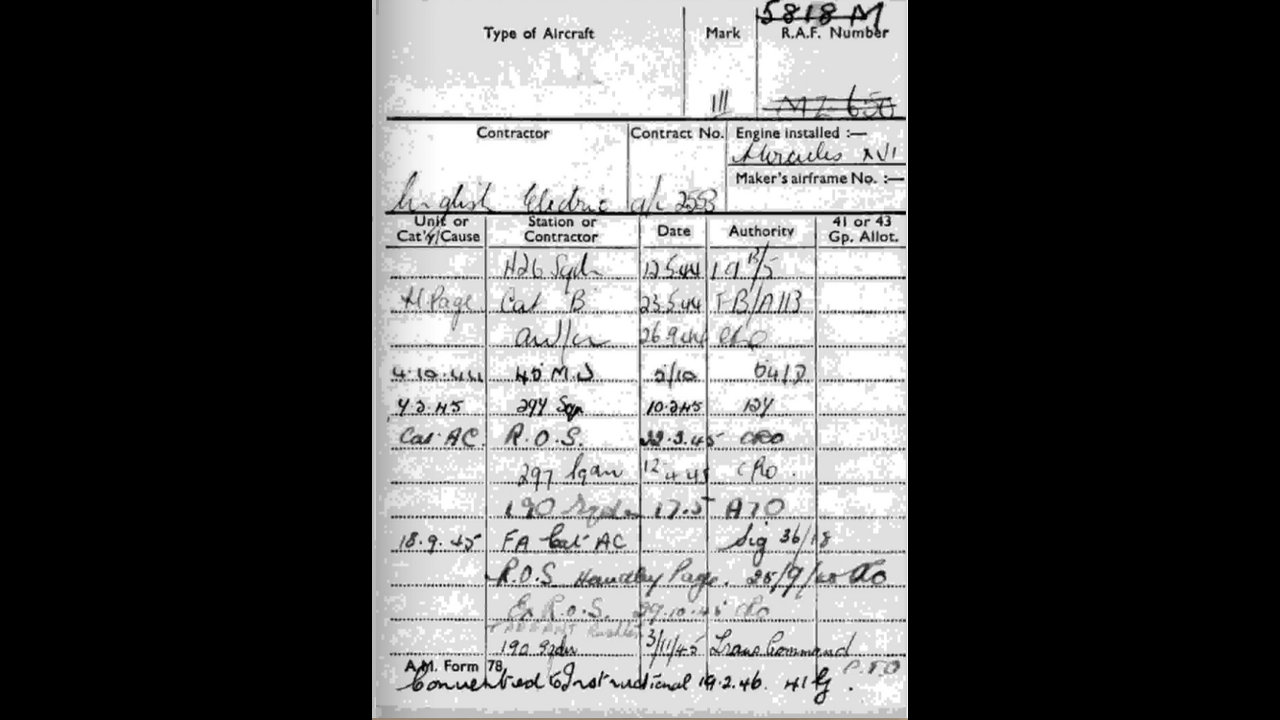 5818 M
Type of Aircraft Mark R.A.F. Number
III MZ 650
Contractor Contract No. Engine installed :—
Hercules XVI
Maker's airframe No. :—
English Electric a/c 2553
Unit or Cat'y/Cause Station or Contractor Date Authority 41 or 43 Gp. Allot.
426 Sqdn 12.5.44 19
H Page Cat B 23.5.44
26.9.44 CRO
4.10.44 45 M.U. 5/10 5412
297 Sqn 10.2.45
Cat AC R.O.S. 22.3.45 CRO
297 Sqdn 12.4.45 CRO.
190 Sqdn 17.5
18.9.45 FA Cat AC Sig 36/18
R.O.S. Handley Page. 25/9/45 CRO
Ex R.O.S. 29.10.45 CRO
TARRANT Rushton
190 Sqdn 3/11/45 Trans Command
A.M. Form 78. P.T.O
Converted to Instructional 19.2.46. 41 G.